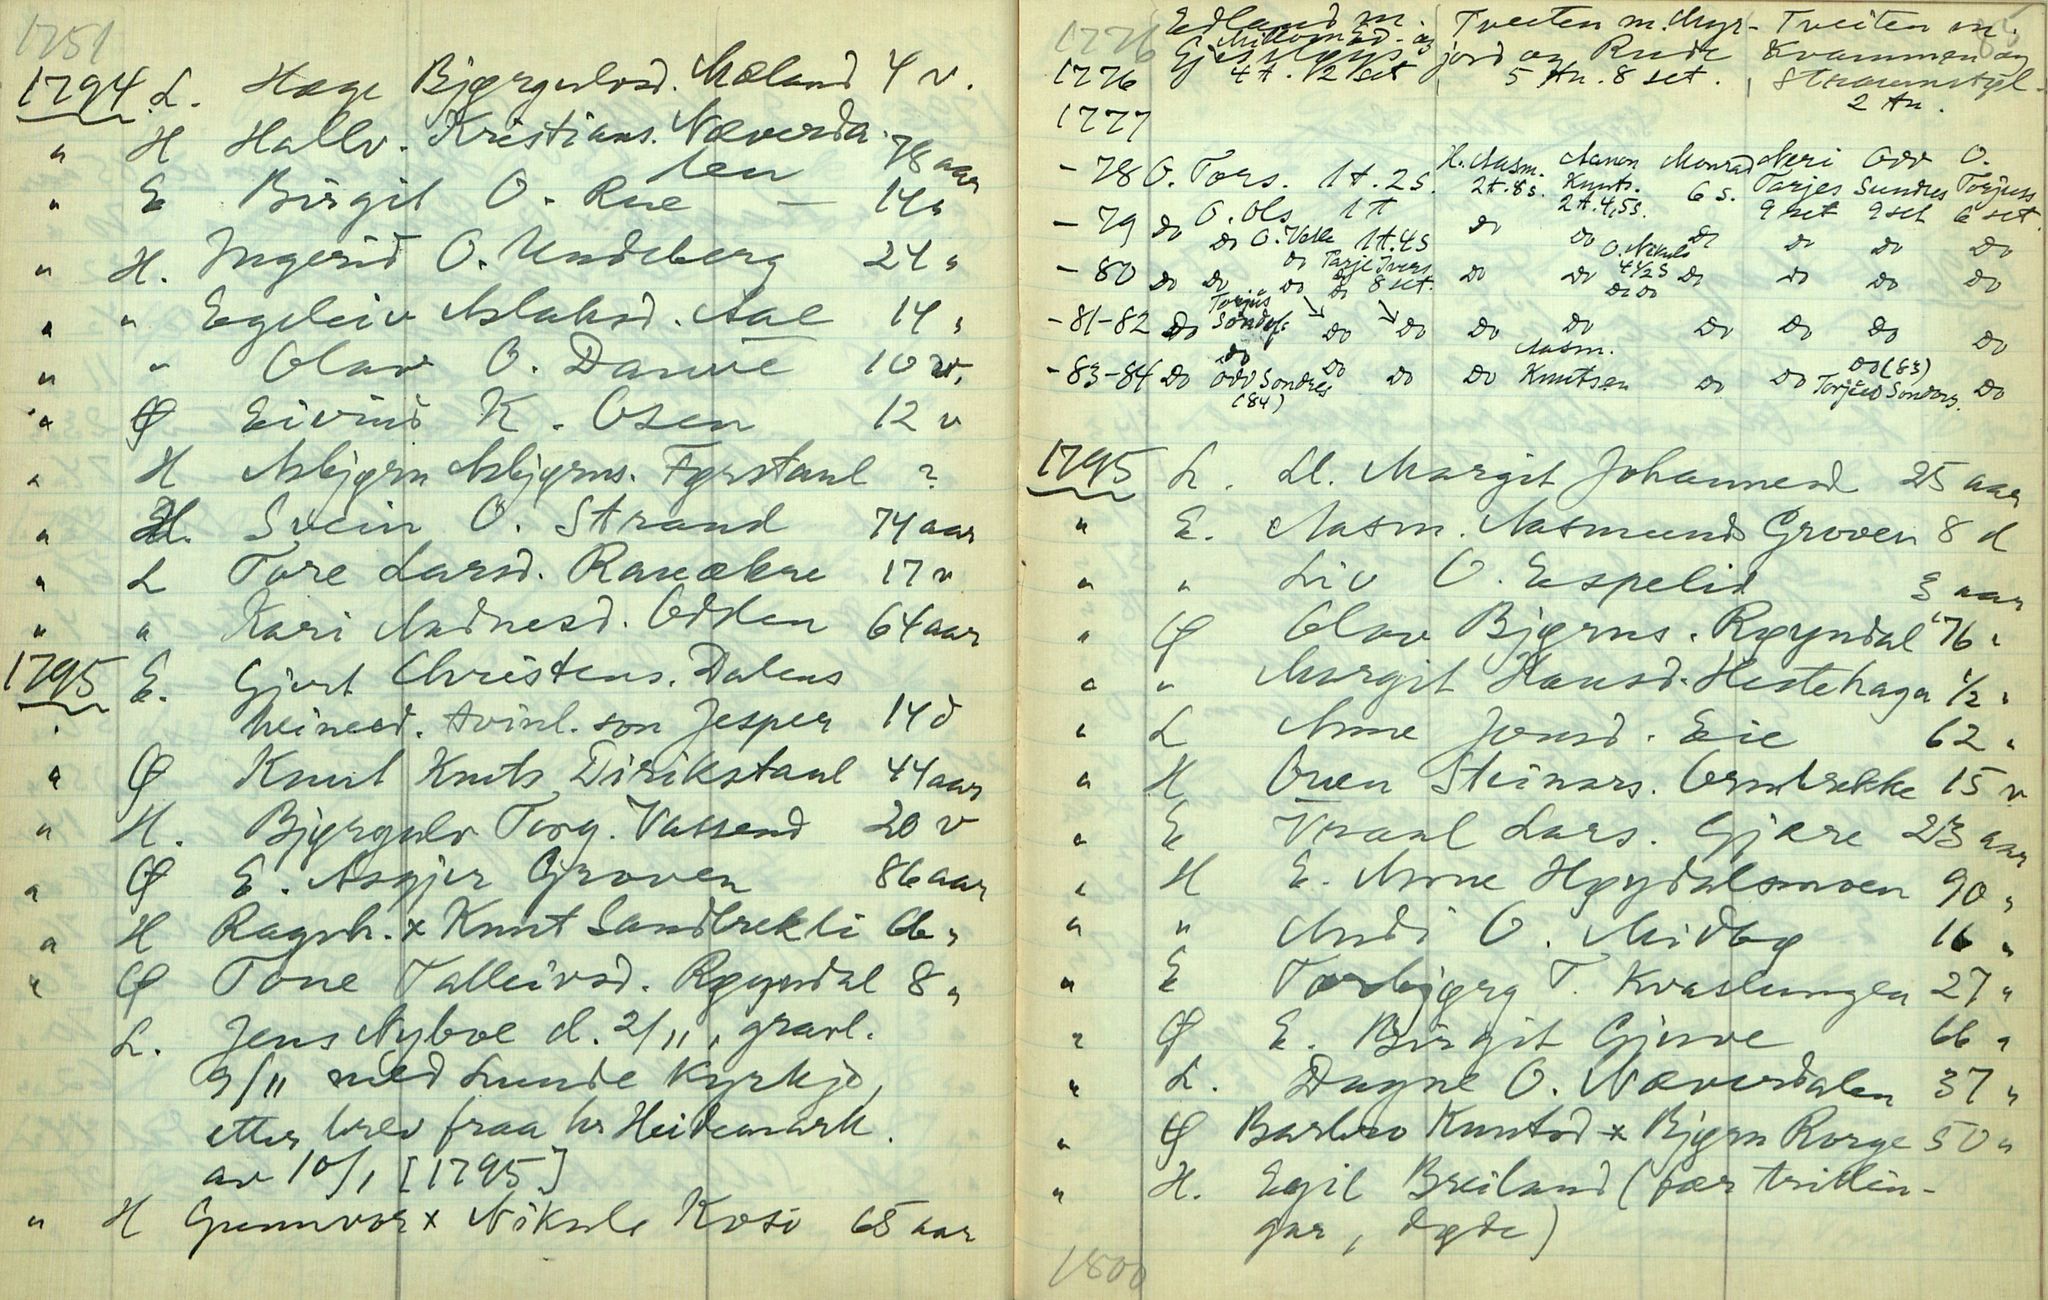 1751
1794 L. Hæge Bjørgulvsd. Mæland 4 v.
" H Hallv. Kristians. Næverda-
len 78 aar
" E Birgit O. Rue — 14 "
" H. Ingerid O. Undeberg 24 "
" " Egeleiv Aslaksd. Aae 14 "
" " Olav O. Dauve 10 v.
" Ø Eivind K. Osen 12 v
" H Asbjørn Asbjørns. Førstaul ?
" H. Svein O. Strand 74 aar
" L Tore Larsd. Raueakre 17 v
" " Kari Aadnesd. Odden 64 aar
1795 E. Gjert Christens. Dalens
" heineed. tvinl. son Jesper 14 d
" Ø Knut Knuts Dirikstaul 44 aar
" H. Bjørgulv Torg. Vassend 20 v
" Ø E. Asgjer Groven 86 aar
" H Ragnh. x Knut Sandbrekki 66 "
" Ø Tone Talleivsd. Røyndal 8 "
L. Jens Nyboe d. 2/11, gravl.
9/11 med Lunde kyrkje,
etter brev fraa hr Heidemark.
av 10/1 [1795]
" H Gunnvor x Nikule Kosi 65 aar
1776 Edland m. Tveiten m. Myr- Tveiten m.
Midtom Ed- og jord og Rude Kvammen og
1776 4 t. 1/2 set 5 tn. 8 set. Straumstyl-
2 tn.
1777
-78 O. Tors. 1t. 2s. H. Aasm. Aanon Monrad Neri Odv O.
2t. 8s. Knuts. 6 s. Tarjes Sundres Torjuss
2t. 4,5s. 9 set 9 set 6 set
-79 do O. Ols 1t do do do do do do
do O. Valle 1t. 4s O. Nikuls
-80 do do do Tarje Ivers do do 4 1/2 s do do do do
do 8 set. do do
-81-82 do Torjus Sondr. do do do do do do do do
do do Aasm.
-83-84 do Odv Sondres do do Knutsen do do do (83) do
(84) Torjus Sondres.
1795 L. Dl. Margit Johannesd 25 aar
" E. Aasm. Aasmunds Groven 8 d
" " Liv O. Espelid 3 aar
" Ø Olav Bjørns. Røyndal 76 "
" " Margit Hansd. Hestehaga 1/2 "
" L Anne Jonsd. Eie 62 "
" H Oven Steinars. Ormbrekke 15 v
" E Vraal Lars. Gjære 23 aar
" H E. Anne Høydalsmoen 90 "
" " Andi O. Midbø 16 "
" E Torbjørg T. Kvaslungen 27 "
" Ø E. Birgit Gjuve 66 "
" L. Dagne O. Næverdalen 37 "
" Ø Barbro Kuntsd x Bjørn Rorge 50 "
" H. Egil Breiland (fær trillin-
gar, døde)
1800